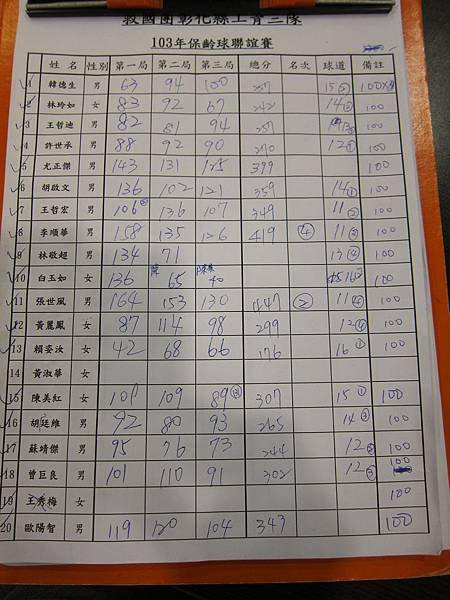 救國團彰化縣工青三隊
103年保齡球聯誼賽
姓 名 性別 第一局 第二局 第三局 總分 名次 球道 備註
1 韓德生 男 63 94 100 257 15 100
2 林玲如 女 83 92 67 242 14 100
3 王哲迪 男 82 81 94 257 100
4 許世承 男 88 92 90 270 12① 100
5 尤正傑 男 143 131 399 100
6 胡啟文 男 136 102 121 359 14 100
7 王哲宏 男 106 136 107 349 11 100
8 李順華 男 158 135 126 419 ④ 11③ 100
9 林敬超 男 134 71 13④ 100
10 白玉如 女 136 65 40 100
11 張世風 男 164 153 130 447 ② 11④ 100
12 黃麗鳳 女 87 114 98 299 12④ 100
13 賴姿汝 女 42 68 66 176 16① 100
14 黃淑華 女
15 陳美紅 女 109 109 89 307 15① 100
16 胡廷維 男 92 80 93 265 14③ 100
17 蘇靖傑 男 95 76 73 244 12 100
18 曾巨良 男 101 110 91 302 12③ 100
19 王秀梅 女 100
20 歐陽智 男 119 120 104 343 100